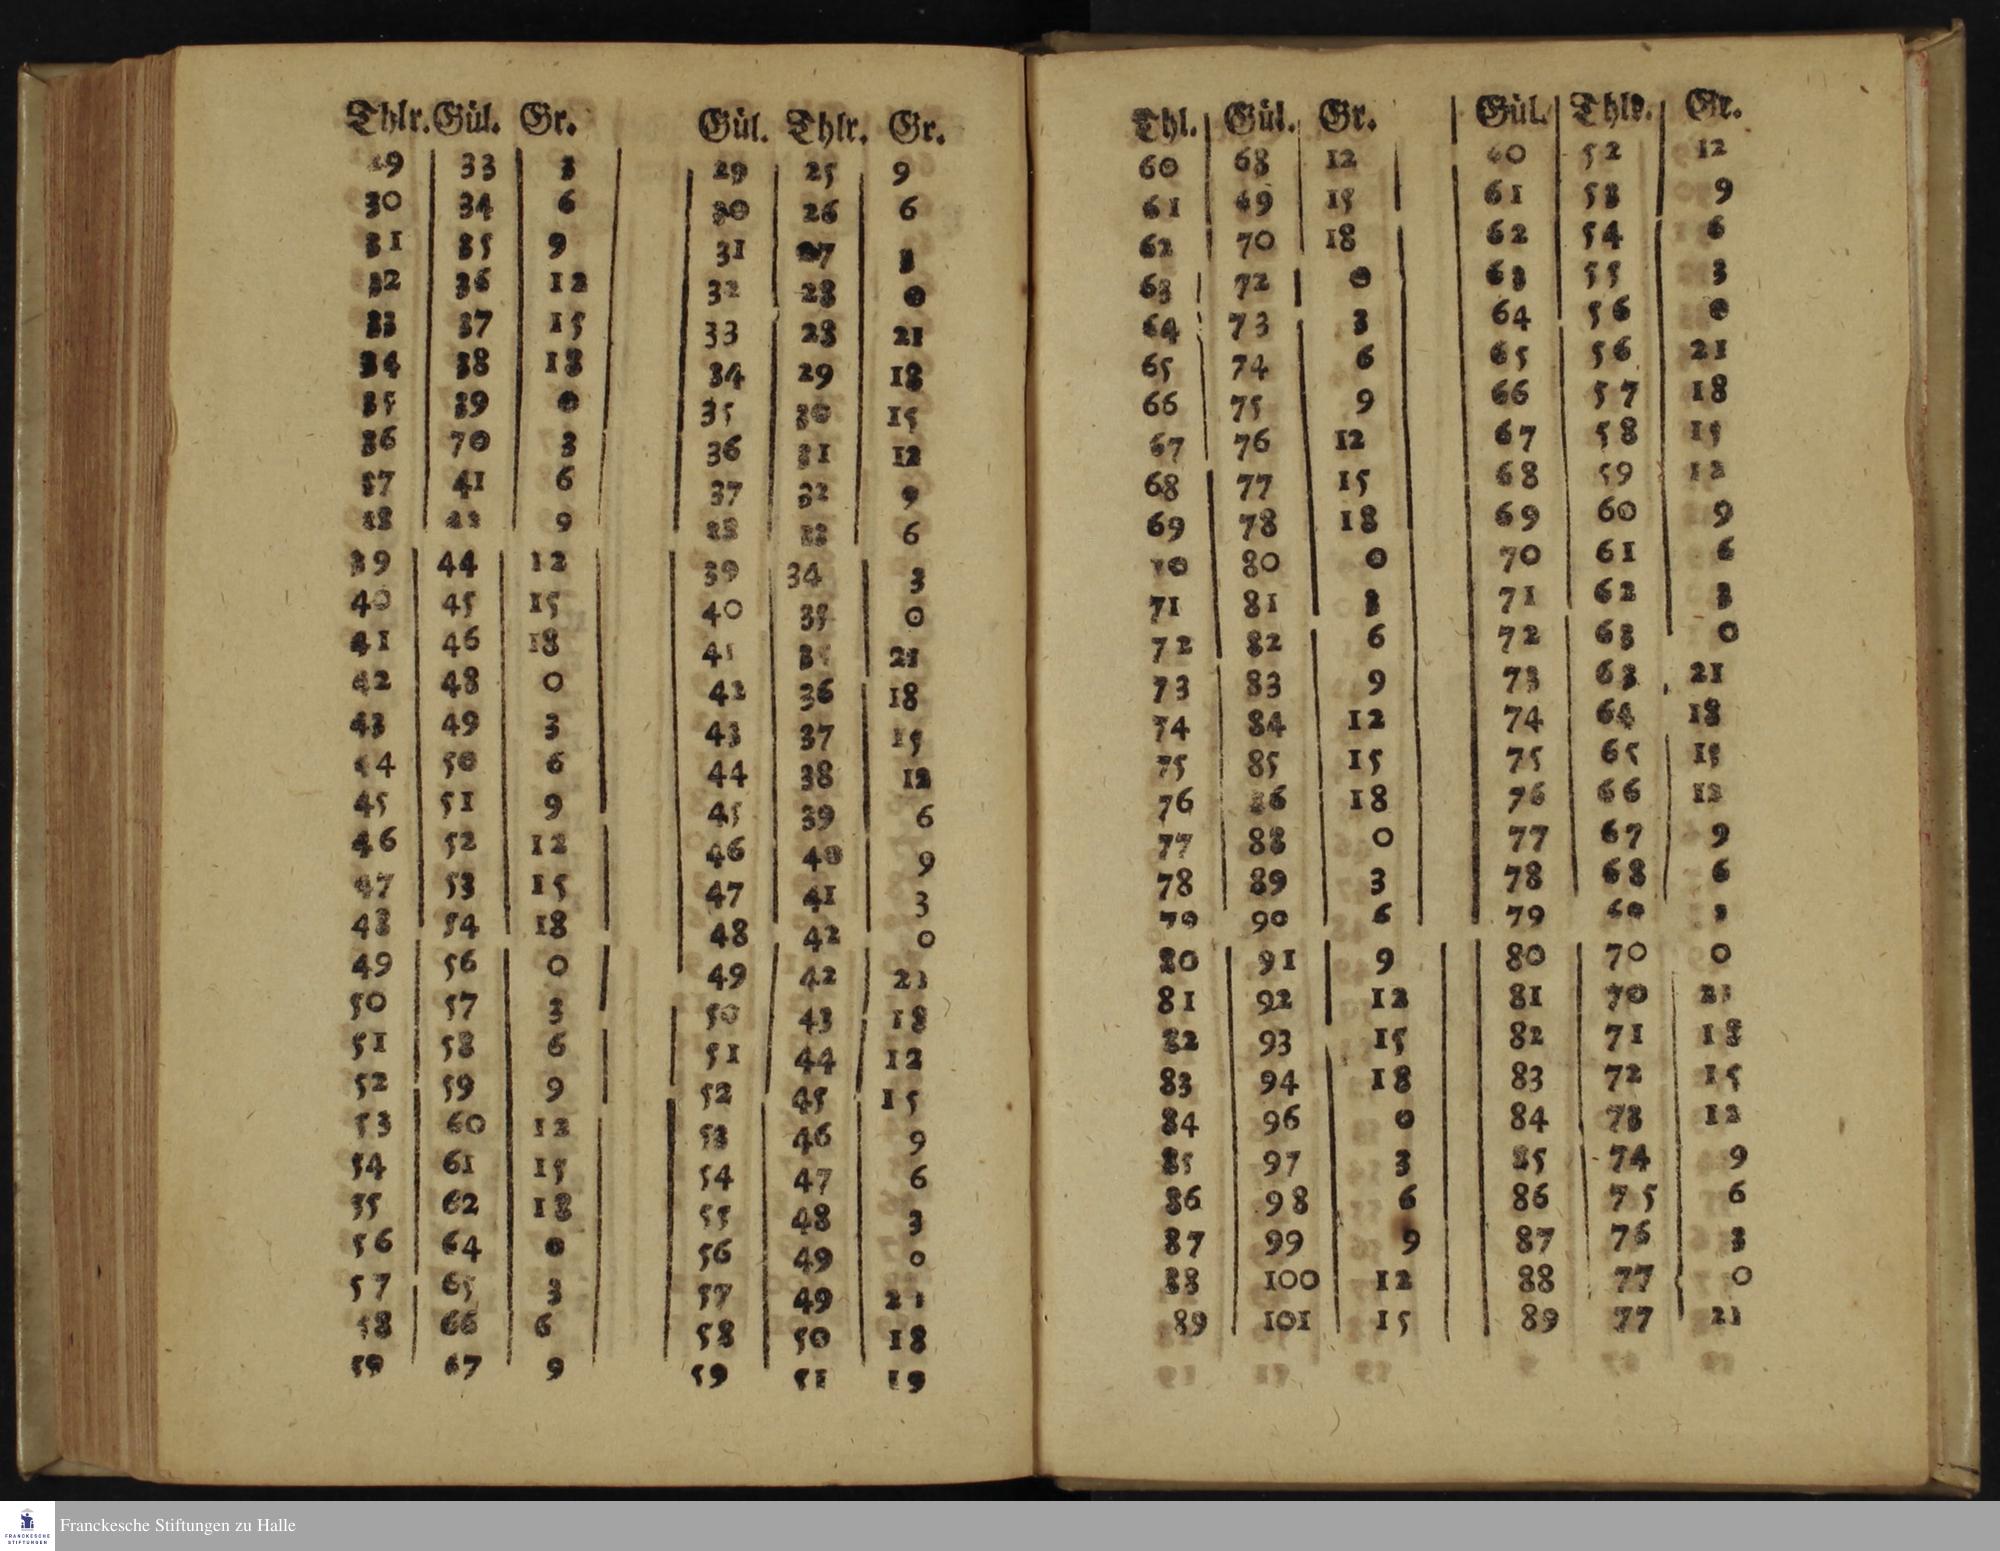 Thlr. Gül. Gr. Gül. Thlr. Gr.
29 33 3 29 25 9
30 34 6 30 26 6
31 35 9 31 27 3
32 36 12 32 28 0
33 37 15 33 28 21
34 38 18 34 29 18
35 39 0 35 30 15
36 70 3 36 31 12
37 41 6 37 32 9
38 42 9 38 33 6
39 44 12 39 34 3
40 45 15 40 35 0
41 46 18 41 35 21
42 48 0 42 36 18
43 49 3 43 37 15
44 50 6 44 38 12
45 51 9 45 39 6
46 52 12 46 40 9
47 53 15 47 41 3
48 54 18 48 42 0
49 56 0 49 42 21
50 57 3 50 43 18
51 58 6 51 44 12
52 59 9 52 45 15
53 60 12 53 46 9
54 61 15 54 47 6
55 62 18 55 48 3
56 64 0 56 49 0
57 65 3 57 49 21
58 66 6 58 50 18
59 67 9 59 51 19
Thl. Gül. Gr. Gül. Thlr. Gr.
60 68 12 60 52 12
61 69 15 61 53 9
62 70 18 62 54 6
63 72 0 63 55 3
64 73 3 64 56 0
65 74 6 65 56 21
66 75 9 66 57 18
67 76 12 67 58 15
68 77 15 68 59 12
69 78 18 69 60 9
70 80 0 70 61 6
71 81 3 71 62 3
72 82 6 72 63 0
73 83 9 73 63 21
74 84 12 74 64 18
75 85 15 75 65 15
76 86 18 76 66 12
77 88 0 77 67 9
78 89 3 78 68 6
79 90 6 79 69 3
80 91 9 80 70 0
81 92 12 81 70 21
82 93 15 82 71 18
83 94 18 83 72 15
84 96 0 84 73 12
85 97 3 85 74 9
86 98 6 86 75 6
87 99 9 87 76 3
88 100 12 88 77 0
89 101 15 89 77 21
FRANCKESCHE STIFTUNGEN
Franckesche Stiftungen zu Halle